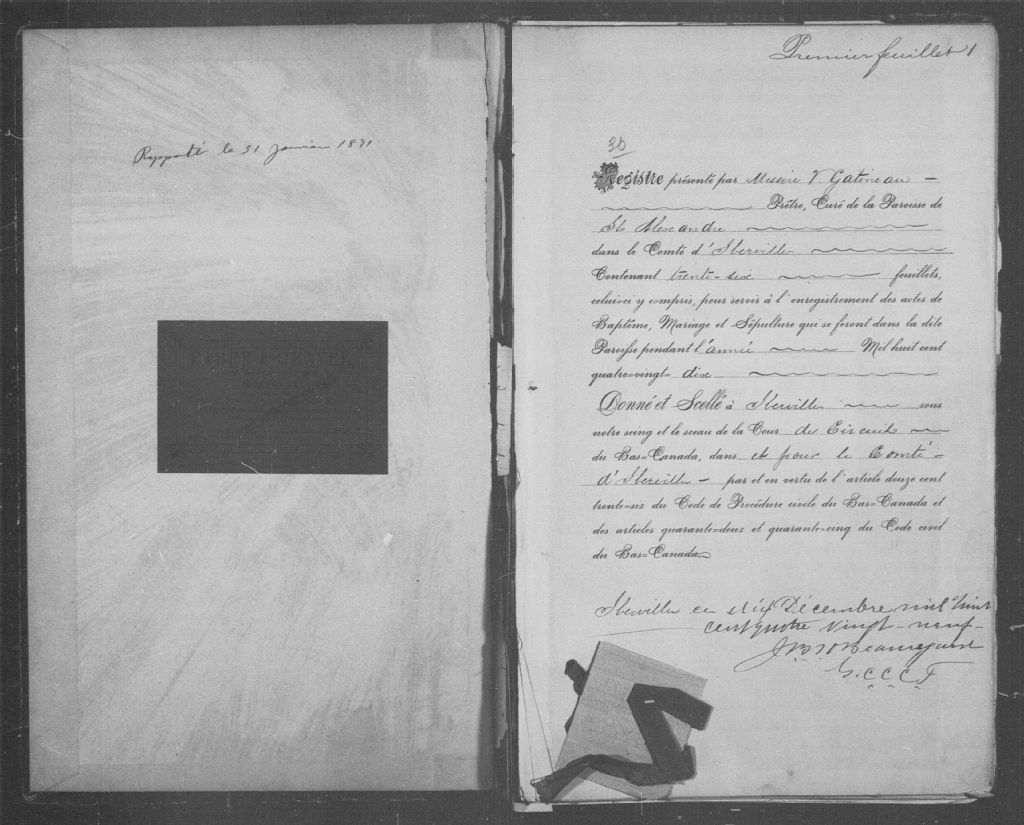 Rapporté le 31 Janvier 1891
Premier feuillet 1
36
Registre présenté par Messire V. Gatineau
Prêtre, Curé de la Paroisse de
St Alexandre
dans le Comté d'Iberville
Contenant trente-six feuillets,
celui-ci y compris, pour servir à l'enregistrement des actes de
Baptême, Mariage et Sépulture qui se feront dans la dite
Paroisse pendant l'année Mil huit cent
quatre-vingt-dix
Donné et Scellé à Iberville sous
notre seing et le sceau de la Cour de Circuit
du Bas-Canada, dans et pour le Comté
d'Iberville par et en vertu de l'article douze cent
trente-six du Code de Procédure civile du Bas-Canada et
des articles quarante-deux et quarante-cinq du Code civil
du Bas-Canada
Iberville ce dix Décembre mil huit
cent quatre vingt-neuf
Beauregard
G.C.C.C.I